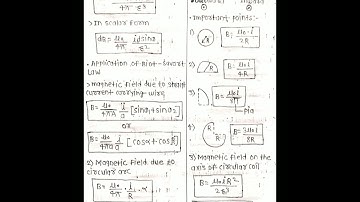 4π r³
>In scalar form
dB = μ₀/4π idl sinα/r²
• Application of Biot-Savart Law
>Magnetic field due to straight current carrying-wire
B = μ₀/4π i/a [sinα₁+sinα₂]
or
B = μ₀/4π i/a [cosα+cosβ]
2) Magnetic field due to circular arc
B = μ₀/4π . i/R . α
• Important points:-
1) R B = μ₀i/2R
2) R B = μ₀i/4R
3) B = μ₀i/8R
pia
4) R B = 3μ₀i/8R
3) Magnetic field on the axis of circular coil
B = μ₀iR²/2r³